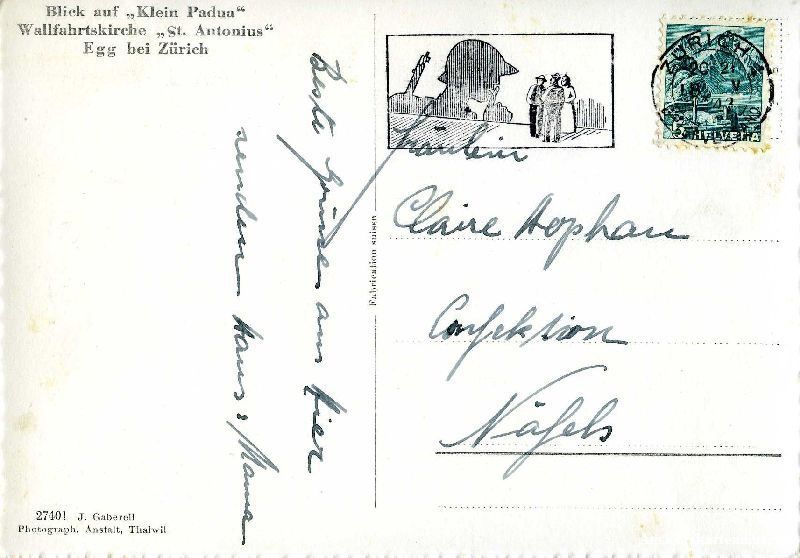 Blick auf „Klein Padua“
Wallfahrtskirche „St. Antonius“
Egg bei Zürich
Beste Grüsse aus hier
senden Hans & Mama
Fabrication suisse
Fräulein
Claire Hophan
Confektion
Näfels
HELVETIA
27401 J. Gaberell
Photograph. Anstalt, Thalwil